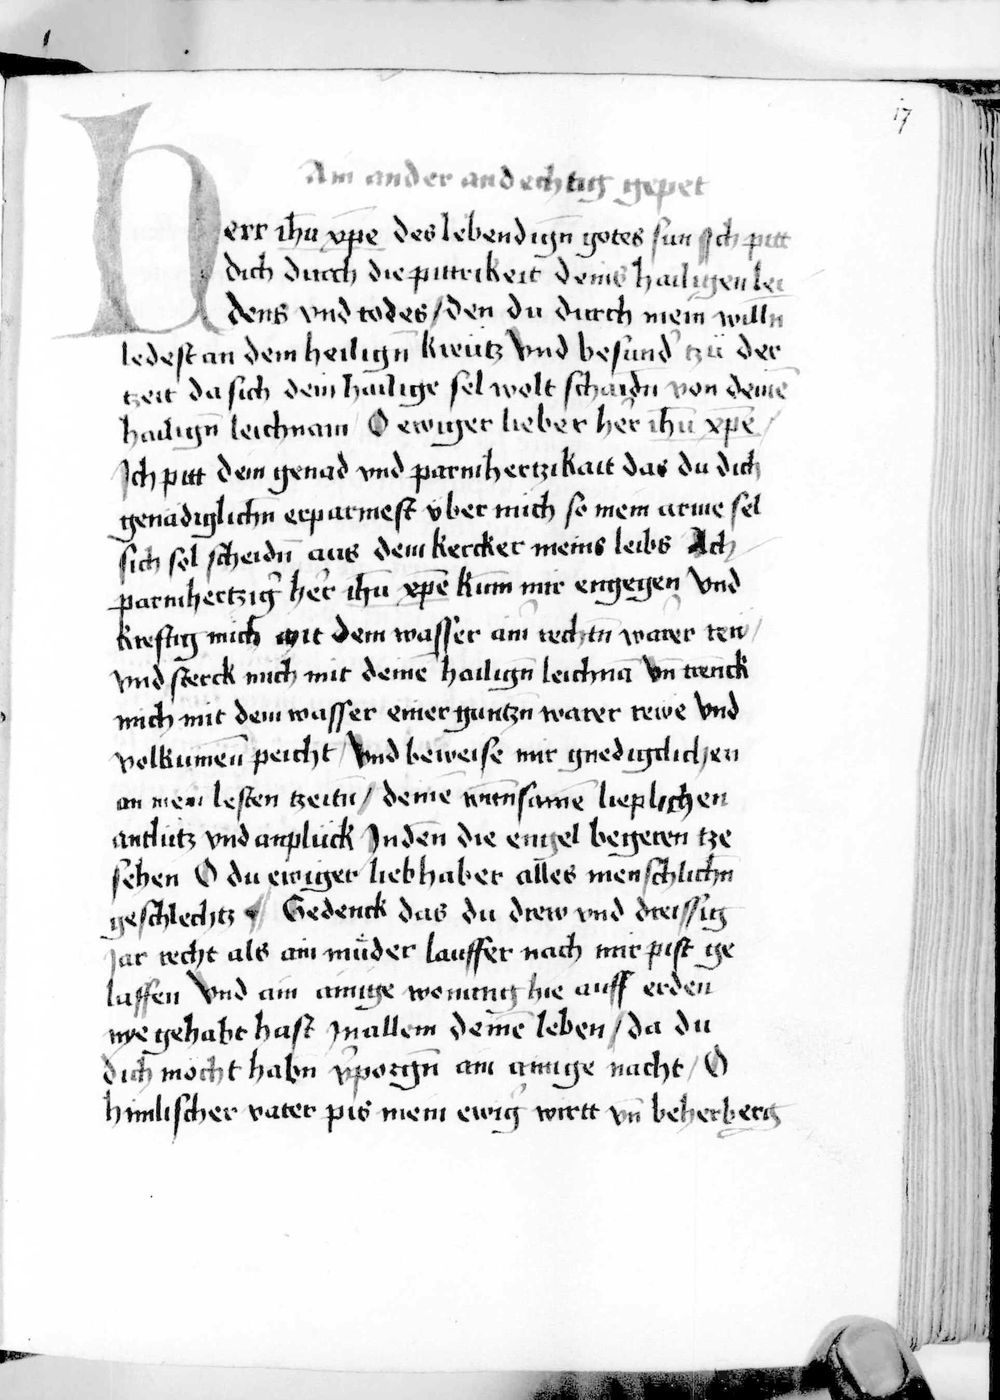 17
Ain ander andechtig gepet
Herr ihū xp̄e des lebendign̄ gotes sun Ich pitt
dich durch die pittrikeit deins hailigen lei
dens vnd todes / den du durch mein willn
ledest an dem heilign̄ kreütz Vnd besund' tzü der
tzeit da sich dein hailige sel wolt schaidn̄ von deinē
hailign̄ leichnam / O ewiger lieber her' ihū xp̄e /
Ich pitt dein genad vnd parmhertzikait das du dich
genädiglichn̄ erparmest vber mich so mein arme sel
sich sol scheidn̄ aus dem kercker meins leibs Ach /
parmhertzig' her' ihū xp̄e kum mir engegen Vnd
kreftig mich mit dem wasser ain' rechtn̄ warer rew /
vnd sterck mich mit deinē hailign̄ leichnā Vn̄ trenck
mich mit dem wasser einer gantzn̄ warer rewe Vnd
volkumen̄ peicht / Vnd beweise mir gnedigclichen
an mein lesten tzeitn̄ / deinē wūnsamē lieplichen
antlütz vnd anplück Inden̄ die engel begeren tze
sehen O du ewiger liebhaber alles menschlichn̄
geschlechtz // Gedenck das du drew vnd dreissig
Jar recht als ain müder lauffer nach mir pist ge
lassen Vnd ain ainige wonung hie auff erden
nye gehabt hast In allem deinē leben / da du
dich möcht habn̄ v'porgn̄ ain ainige nacht / O
himlischer vater pis mein ewig' wirtt vn̄ beherberg